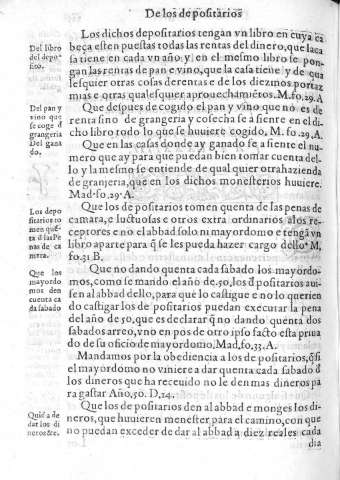 De los depositarios
Los dichos depositarios tengan vn libro en cuya ca
beça esten puestas todas las rentas del dinero, que la ca
sa tiene en cada vn año y en el mesmo libro se pon-
gan las rentas de pan e vino, que la casa tiene y de qua
lesquier otras cosas de rentas e de los diezmos portaz
mias e otras qualesquier aprouechamiẽtos. M. fo. 29. A
Que despues de cogido el pan y vino que no es de
renta sino de grangeria y cosecha se a siente en el di
cho libro todo lo que se huuiere cogido, M. fo. 29. A.
Que en las casas donde ay ganado se a siente el nu
mero que ay para que puedan bien tomar cuenta del-
lo y la mesmo se entiende de qual quier otra hazienda
de granjeria, que en los dichos monesterios huuiere.
Mad. fo. 29. A.
Que los depositarios tomen quenta de las penas de
camara, e luctuosas e otros extra ordinarios a los re-
ceptores e no el abbad solo ni mayordomo e tengã vn
libro aparte para q̃ se les pueda hazer cargo dello. M,
fo. 51 B.
Que no dando quenta cada sabado los mayordo-
mos, como se mando el año de .50. los d̃positarios aui-
sen al abbad dello, para que lo castigue e no lo querien
do castigar los depositarios puedan executar la pena
del año de 50, que es declarar q̃ no dando quenta dos
sabados arreo, vno en pos de otro ipso facto esta priua
do de su oficio de mayordomo, Mad. fo. 33. A.
Mandamos por la obediencia a los depositarios, q̃ si
el mayordomo no viniere a dar quenta cada sabado d̃
los dineros que ha receuido no le den mas dineros pa
ra gastar Año, 50. D. 14.
Que los depositarios den al abbad e monges los di-
neros, que huuieren menester para el camino, con que
no puedan exceder de dar al abbad a diez reales cada
dia
Del libro
del depo-
sito.
Del pan y
vino que
se coge d̃
grangeria
Del gana
do.
Los depo
sitarios to
men quẽ-
ta d̃ las Pe
nas de ca
mara.
Que los
mayordo
mos den
cuenta ca
da sabado
Quiẽ a de
dar los di
neros &c.